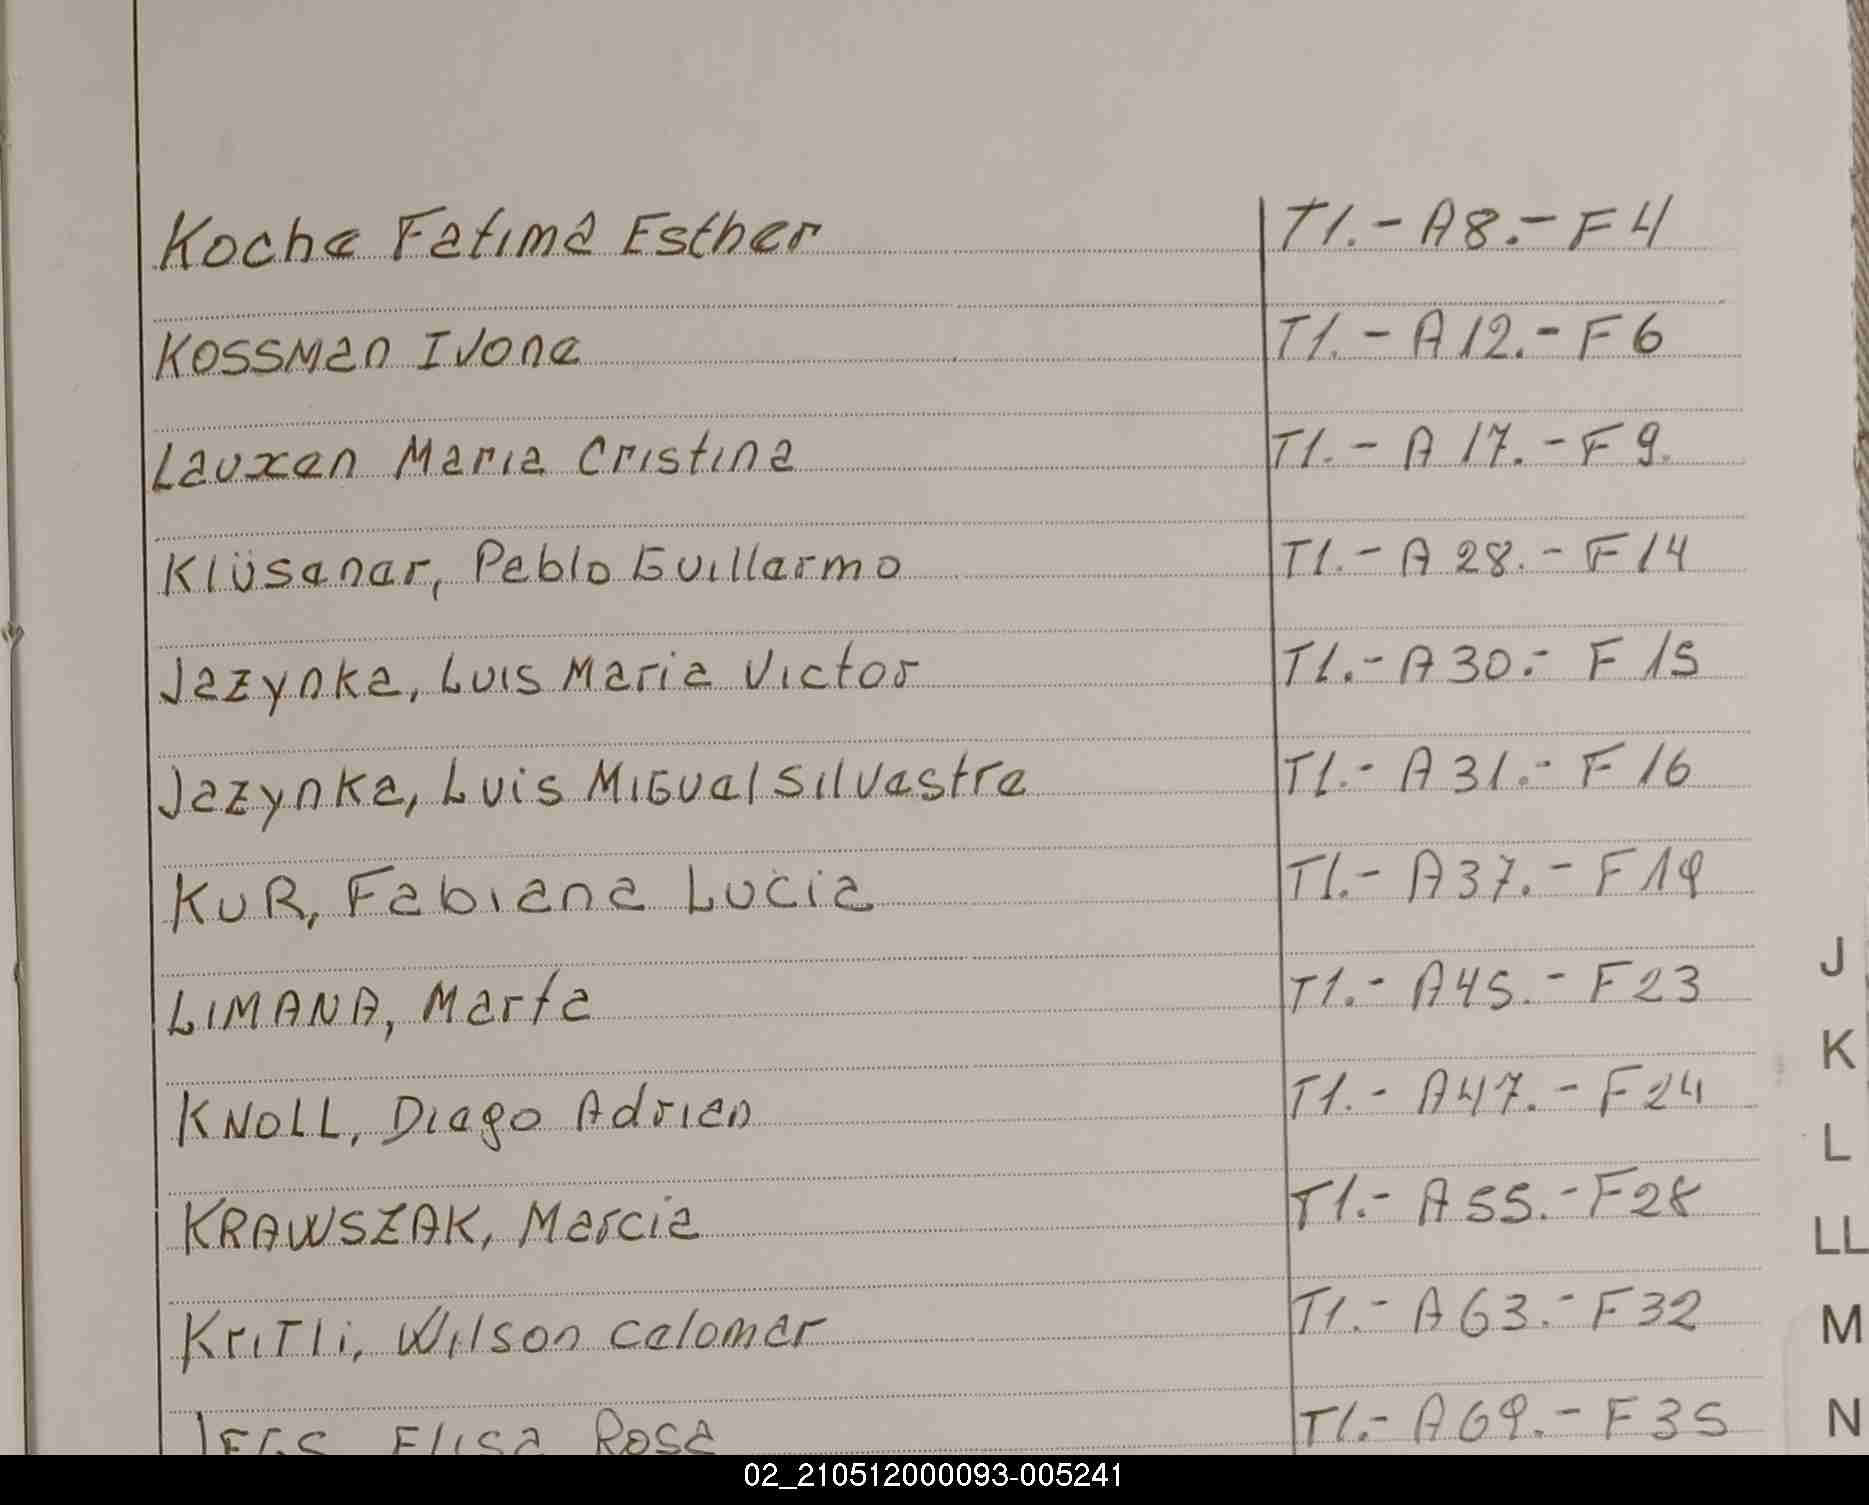 Koche Fatima Esther T1.- A8.- F4
KOSSMAN IVone T1.- A12.- F6
Lauxen Maria Cristina T1.- A17.- F9.
Klüsener, Pablo Guillermo T1.- A28.- F14
Jazynka, Luis Maria Victor T1.- A30.- F15
Jazynka, Luis Miguel Silvestre T1.- A31.- F16
KUR, Fabiana Lucia T1.- A37.- F19
LIMANA, Marta T1.- A45.- F23
J
KNOLL, Diego Adrian T1.- A47.- F24
K
L
KRAWSZAK, Marcia T1.- A55.- F28
LL
KriTli, Wilson celomar T1.- A63.- F32
M
Elisa Rosa T1.- A69.- F35
N
02_210512000093-005241